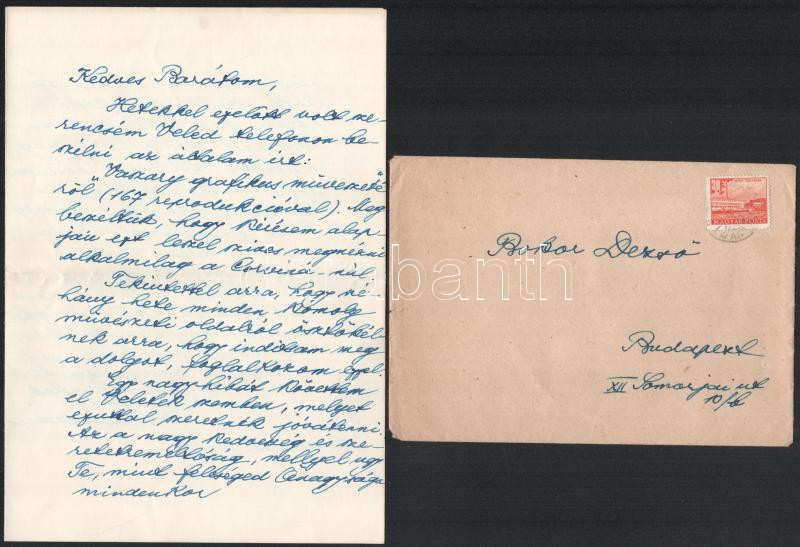 Kedves Barátom,
Hetekkel ezelőtt volt sze-
rencsém Veled telefonon be-
szélni az általam írt:
Vaszary grafikus művészeté-
ről (167 reprodukcióval). Meg-
beszéltük, hogy kérésem alap-
ján ezt leszel szíves megnézni
alkalmilag a Corviná-nál
Tekintettel arra, hogy né-
hány hete minden komoly
művészeti oldalról ösztökél-
nek arra, hogy indítsam meg
a dolgot, foglalkozom ezzel.
Egy nagy hibát követtem
el Veletek szemben, melyet
ezúttal szeretnék jóvátenni.
Az a nagy kedvesség és sze-
retetreméltóság, mellyel úgy
Te, mint feleséged Őnagysága
mindenkor
Bokor Dezső
Budapest
XII Somorjai út
10/b
MAGYAR POSTA
darabanth